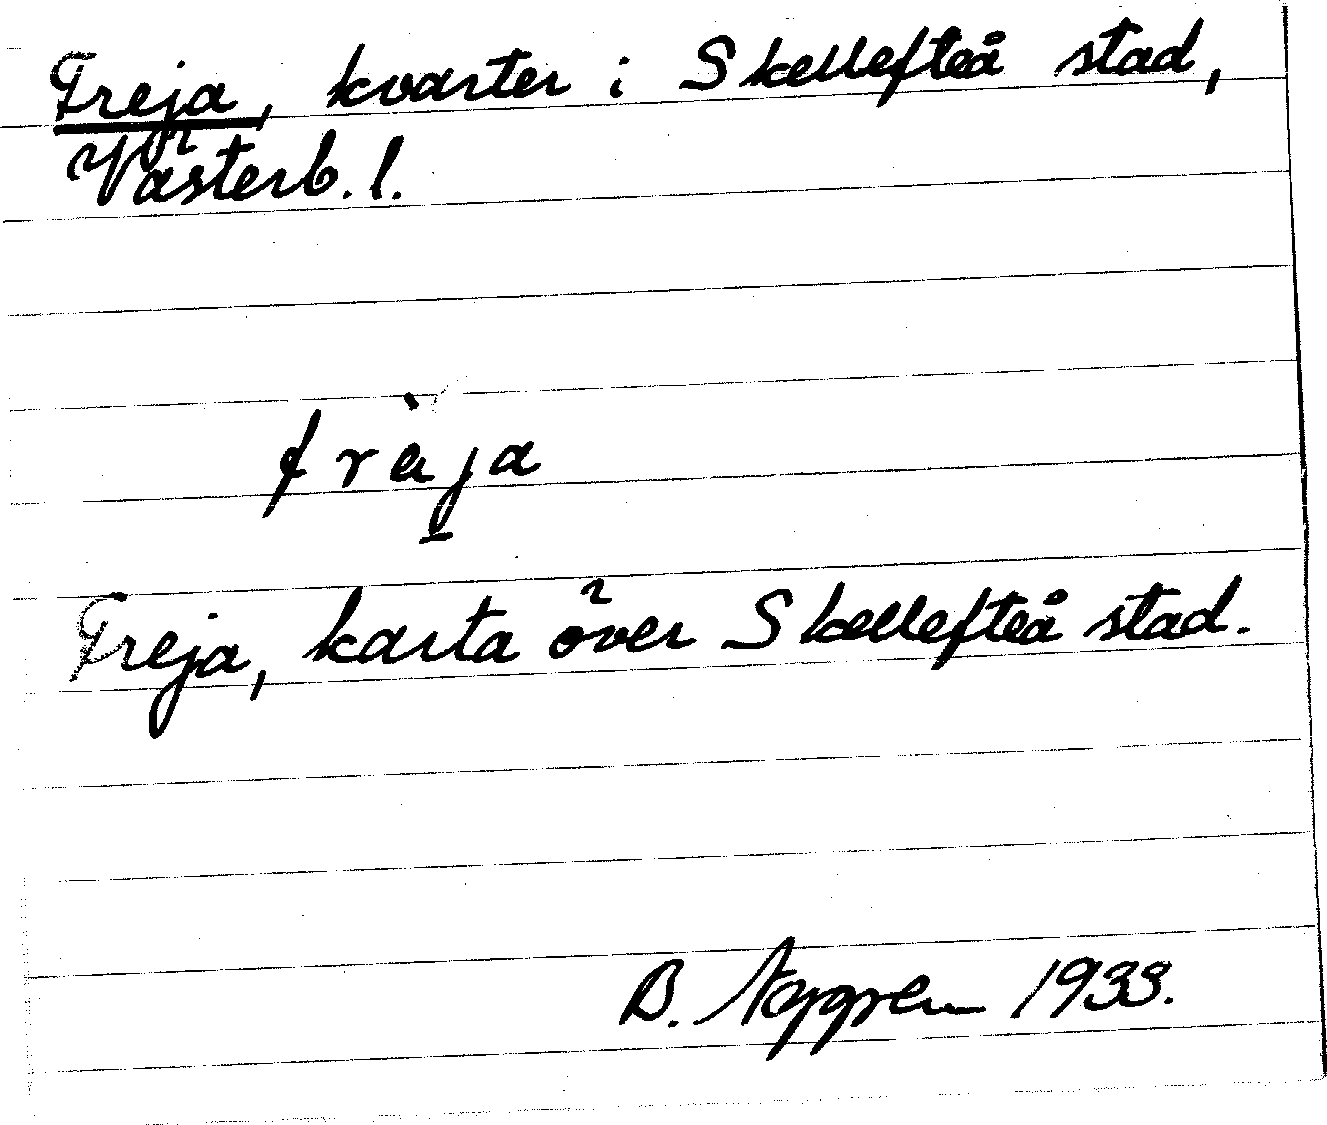 Freja, kvarter i Skellefteå stad,
Västerb. l.
fràja
Freja, karta över Skellefteå stad.
B. 1933.